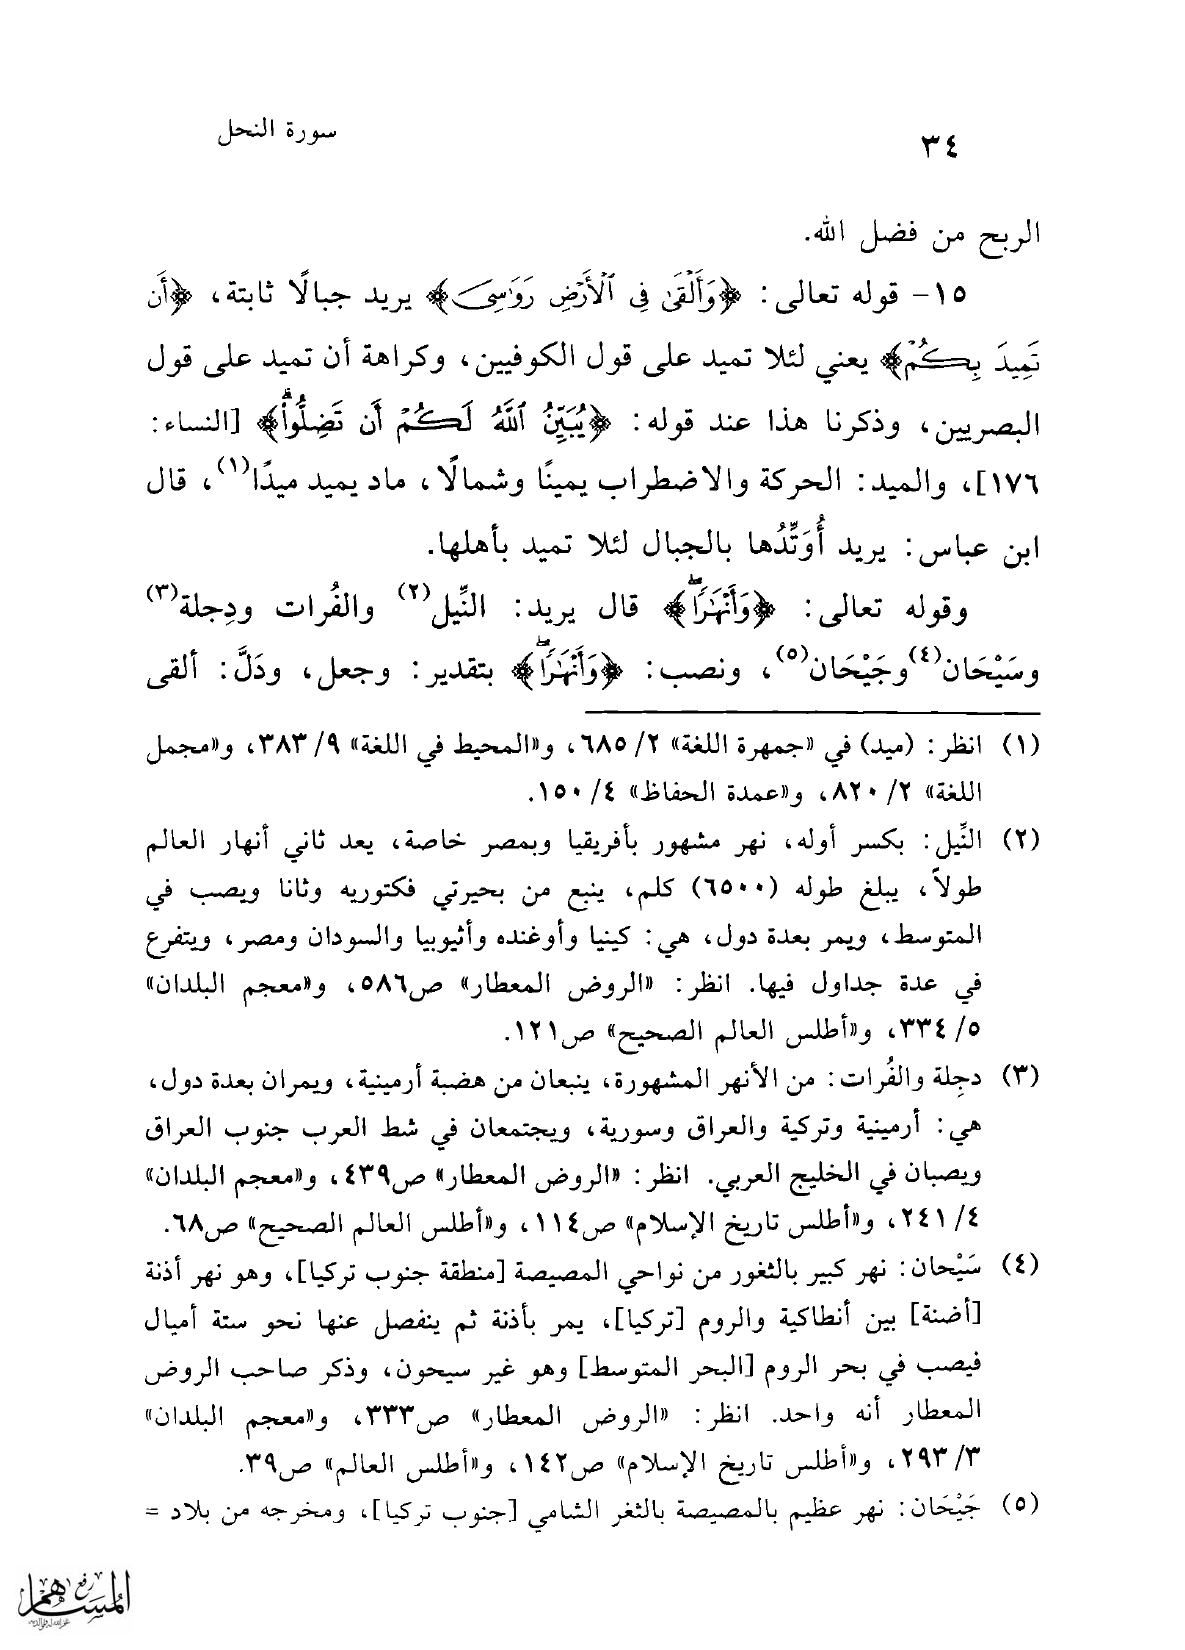 ٣٤
سورة النحل
الربح من فضل الله.
١٥- قوله تعالى: ﴿وَأَلْقَىٰ فِي ٱلْأَرْضِ رَوَٰسِيَ﴾ يريد جبالًا ثابتة، ﴿أَن
تَمِيدَ بِكُمْ﴾ يعني لئلا تميد على قول الكوفيين، وكراهة أن تميد على قول
البصريين، وذكرنا هذا عند قوله: ﴿يُبَيِّنُ ٱللَّهُ لَكُمْ أَن تَضِلُّواْ﴾ [النساء:
١٧٦]، والميد: الحركة والاضطراب يمينًا وشمالًا، ماد يميد ميدًا(١)، قال
ابن عباس: يريد أُوَتِّدُها بالجبال لئلا تميد بأهلها.
وقوله تعالى: ﴿وَأَنْهَٰرًا﴾ قال يريد: النِّيل(٢) والفُرات ودِجلة(٣)
وسَيْحَان(٤) وجَيْحَان(٥)، ونصب: ﴿وَأَنْهَٰرًا﴾ بتقدير: وجعل، ودَلَّ: ألقى
(١) انظر: (ميد) في «جمهرة اللغة» ٢/ ٦٨٥، و«المحيط في اللغة» ٩/ ٣٨٣، و«مجمل
اللغة» ٢/ ٨٢٠، و«عمدة الحفاظ» ٤/ ١٥٠.
(٢) النِّيل: بكسر أوله، نهر مشهور بأفريقيا وبمصر خاصة، يعد ثاني أنهار العالم
طولاً، يبلغ طوله (٦٥٠٠) كلم، ينبع من بحيرتي فكتوريه وثانا ويصب في
المتوسط، ويمر بعدة دول، هي: كينيا وأوغنده وأثيوبيا والسودان ومصر، ويتفرع
في عدة جداول فيها. انظر: «الروض المعطار» ص٥٨٦، و«معجم البلدان»
٥/ ٣٣٤، و«أطلس العالم الصحيح» ص١٢١.
(٣) دجِلة والفُرات: من الأنهر المشهورة، ينبعان من هضبة أرمينية، ويمران بعدة دول،
هي: أرمينية وتركية والعراق وسورية، ويجتمعان في شط العرب جنوب العراق
ويصبان في الخليج العربي. انظر: «الروض المعطار» ص٤٣٩، و«معجم البلدان»
٤/ ٢٤١، و«أطلس تاريخ الإسلام» ص١١٤، و«أطلس العالم الصحيح» ص٦٨.
(٤) سَيْحان: نهر كبير بالثغور من نواحي المصيصة [منطقة جنوب تركيا]، وهو نهر أذنة
[أضنة] بين أنطاكية والروم [تركيا]، يمر بأذنة ثم ينفصل عنها نحو ستة أميال
فيصب في بحر الروم [البحر المتوسط] وهو غير سيحون، وذكر صاحب الروض
المعطار أنه واحد. انظر: «الروض المعطار» ص٣٣٣، و«معجم البلدان»
٣/ ٢٩٣، و«أطلس تاريخ الإسلام» ص١٤٢، و«أطلس العالم» ص٣٩.
(٥) جَيْحَان: نهر عظيم بالمصيصة بالثغر الشامي [جنوب تركيا]، ومخرجه من بلاد =
رفع
المساهم